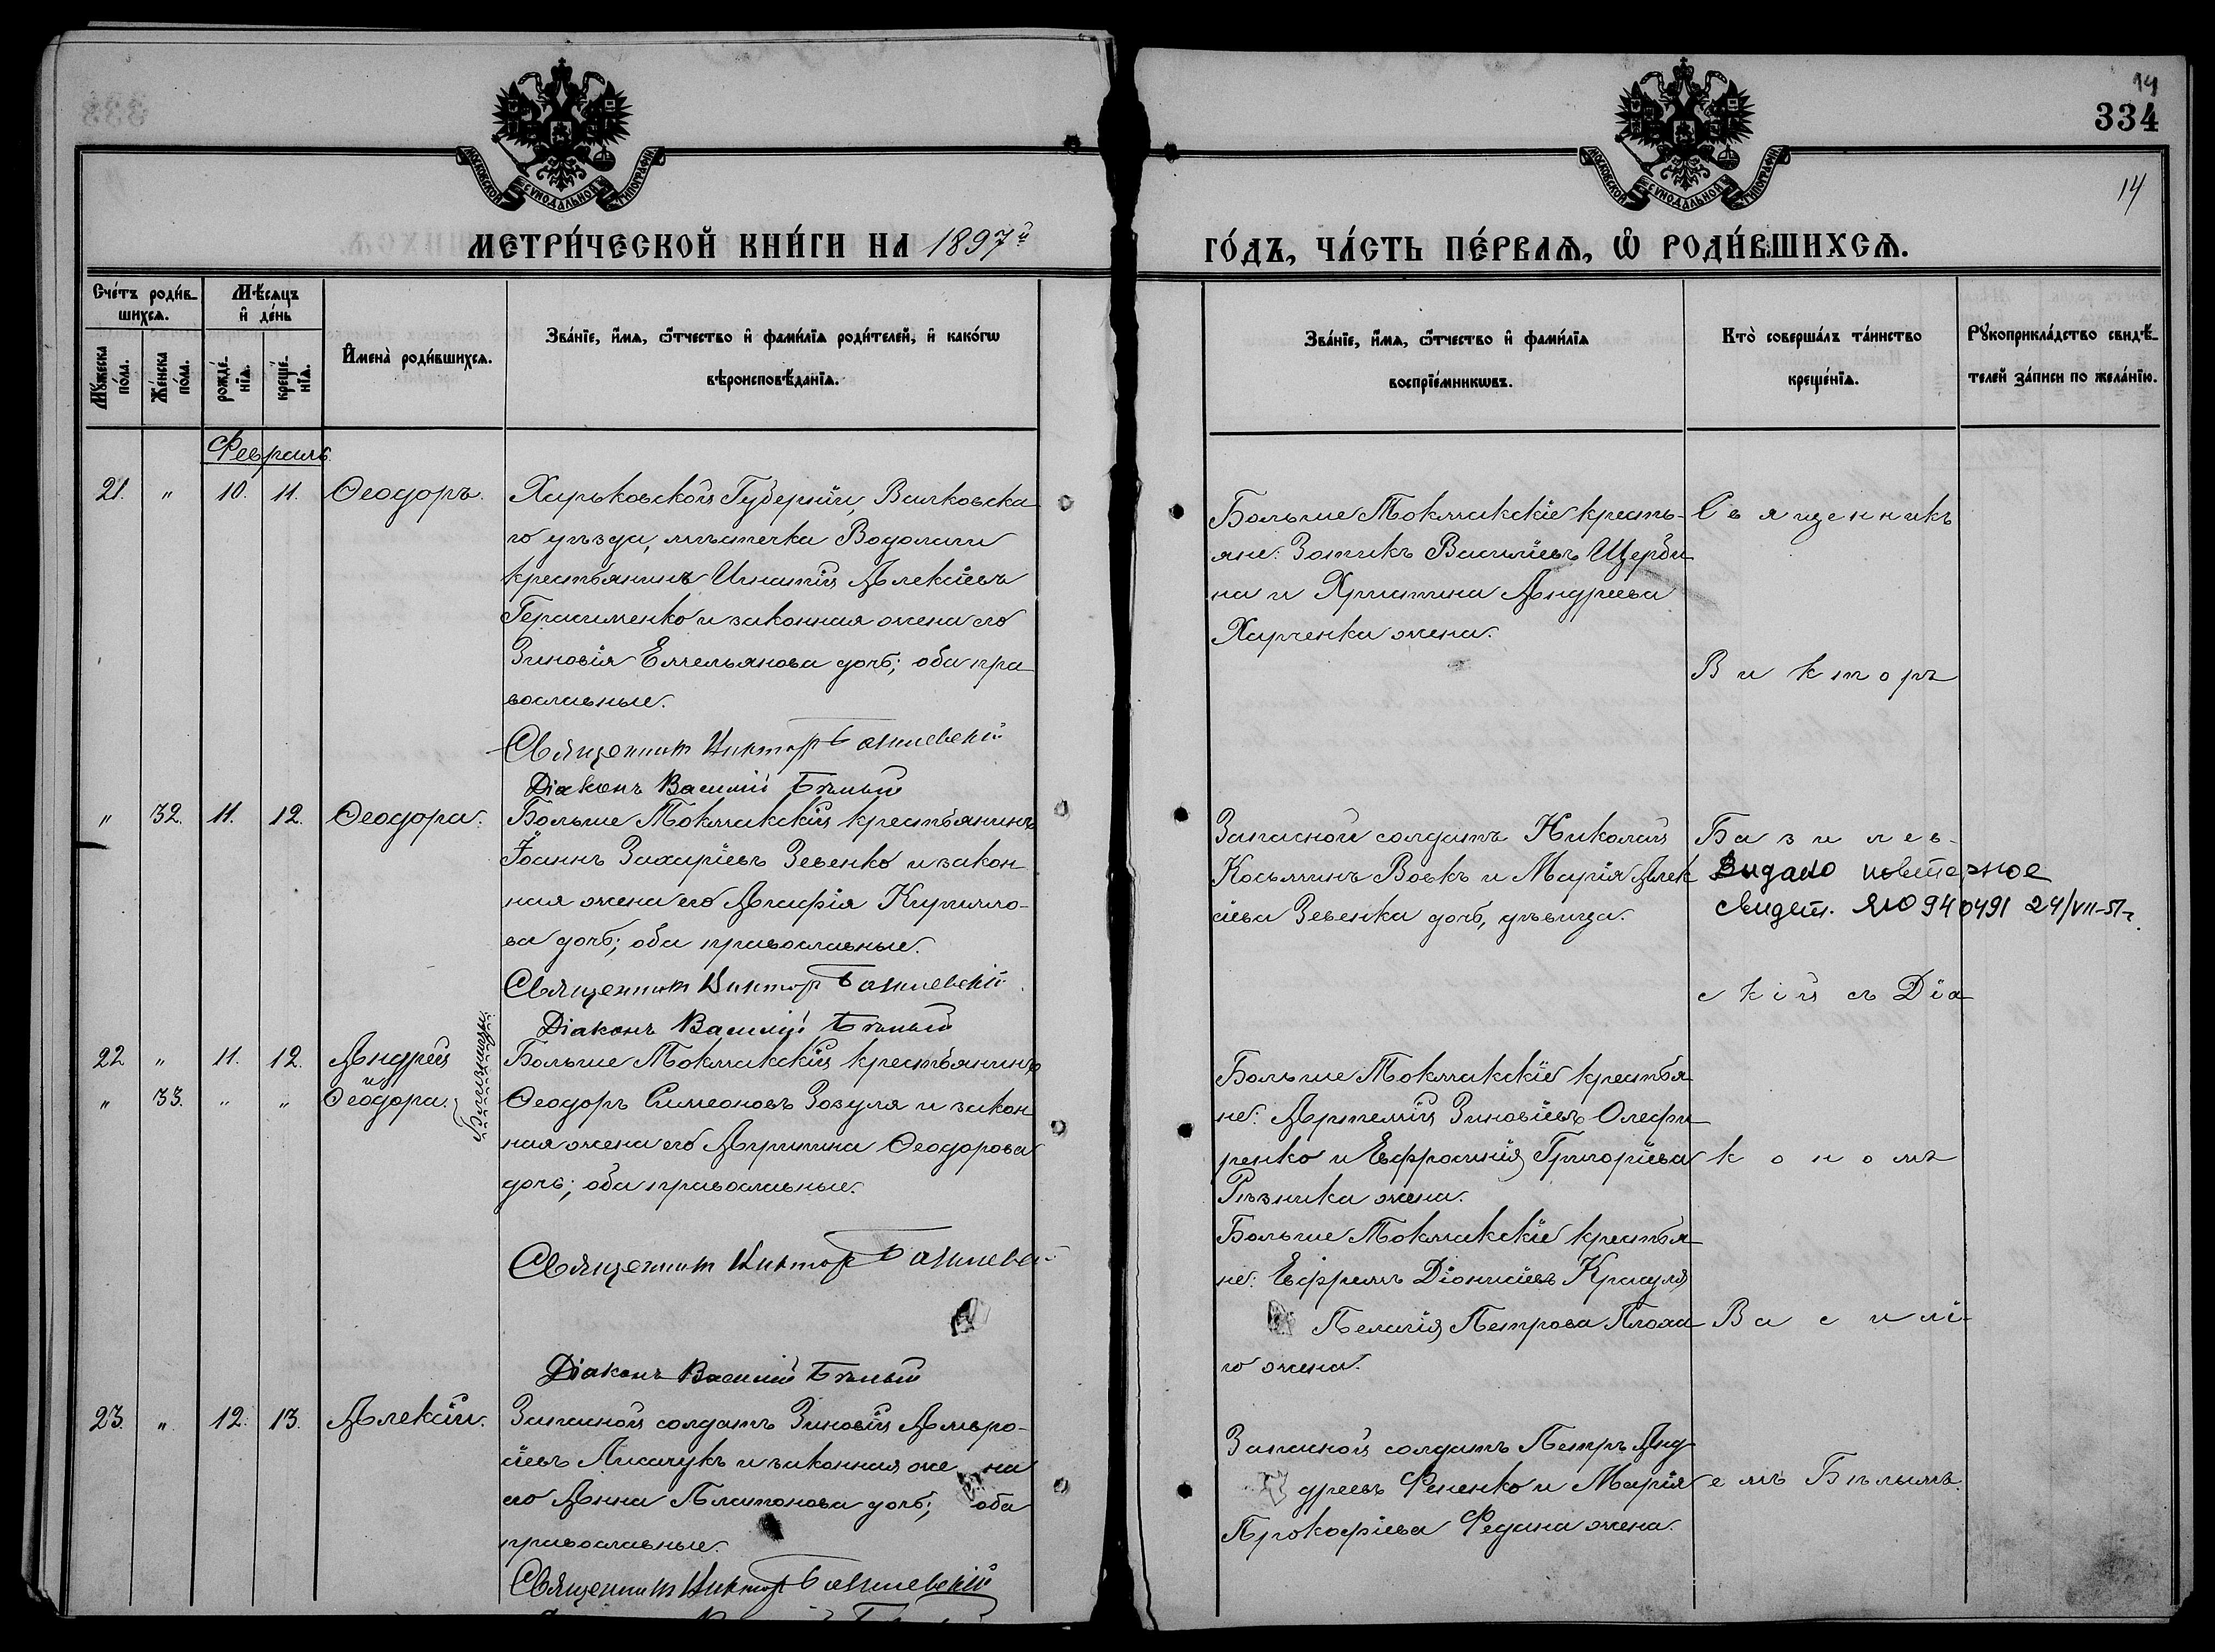 14
334
14
МОСКОВСКОЙ СѴНОДАЛЬНОЙ ТИПОГРАФІИ
МОСКОВСКОЙ СѴНОДАЛЬНОЙ ТИПОГРАФІИ
МЕТРИ́ЧЕСКОЙ КНИ́ГИ НА 1897й
ГО́ДЪ, ЧА́СТЬ ПЕ́РВАѦ, Ѡ҆ РОДИ́ВШИХСѦ.
Сче́тъ роди́в-
шихсѧ.
Мѣ́сѧцъ
и҆ де́нь
Мꙋ́жеска
по́ла.
Же́нска
по́ла.
рожде́-
нїѧ.
креще́-
нїѧ.
И҆мена̀ роди́вшихсѧ.
Зва́нїе, и҆́мѧ, ѻ҆́тчество и҆ фами́лїѧ роди́телей, и҆ како́гѡ
вѣроисповѣ́данїѧ.
Зва́нїе, и҆́мѧ, ѻ҆́тчество и҆ фами́лїѧ
воспрїе́мникѡвъ.
Кто̀ соверша́лъ та́инство
креще́нїѧ.
Рꙋкоприкла́дство свидѣ́-
телей за́писи по жела́нїю.
Февраль.
21. " 10. 11. Ѳеодоръ.
Харьковской Губерніи, Валковска
го уѣзда, мѣстечка Водолаги
крестьянинъ Игнатій Алексіевъ
Герасименко и законная жена его
Зиновія Емельянова дочь; оба пра
вославные.
Священник Виктор Базилевскій
Діаконъ Василій Бѣлый
Больше Токмакскіе кресть-
яне: Зотикъ Василіевъ Щерби
на и Христина Андреева
Харченка жена.
Священникъ
Викторъ
" 32. 11. 12. Ѳеодора.
Больше Токмакскій крестьянинъ
Іоаннъ Захаріевъ Зевенко и закон
ная жена его Агафія Кирилло-
ва дочь; оба православные.
Священник Виктор Базилевскій
Діаконъ Василій Бѣлый
Запасной солдатъ Николай
Косьминъ Вовкъ и Марія Алек
сіева Зевенка дочь, дѣвица.
Базилев-
Видано повторное
свидет. ЯЮ 940491 24/VII-51 г.
скій съ Діа
22 " 11. 12. Андрей
и
" 33. " " Ѳеодора.
Близнецы
Больше Токмакскій крестьянинъ
Ѳеодоръ Симеоновъ Зозуля и закон
ная жена его Агрипина Ѳеодорова
дочь; оба православные.
Священник Виктор Базилевск
Діаконъ Василій Бѣлый
Больше Токмакскіе крестья
не: Артемій Зиновіевъ Олефи
ренко и Евфросинія Григоріева
Рѣзника жена.
Больше Токмакскіе крестья
не: Ефремъ Діонисіевъ Красуля
Пелагія Петрова Плоха
го жена.
кономъ
Василі-
23. " 12. 13. Алексій.
Запасной солдатъ Зиновій Амвро-
сіевъ Лисачукъ и законная же на
его Анна Платонова дочь; оба
православные.
Священник Виктор Базилевскій
Запасной солдатъ Петръ Анд
дреевъ Фененко и Марія
Прокофіева Федана жена.
емъ Бѣлымъ.